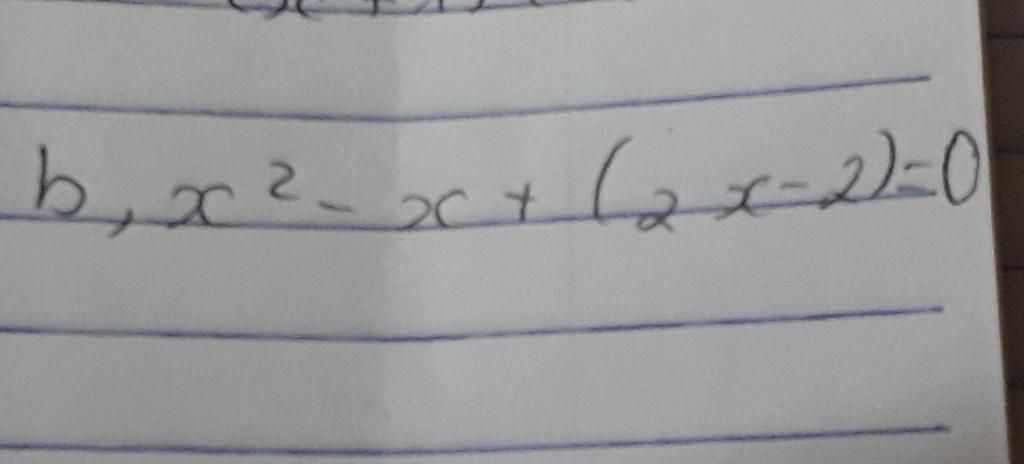 b, x² - x + (2x-2)=0